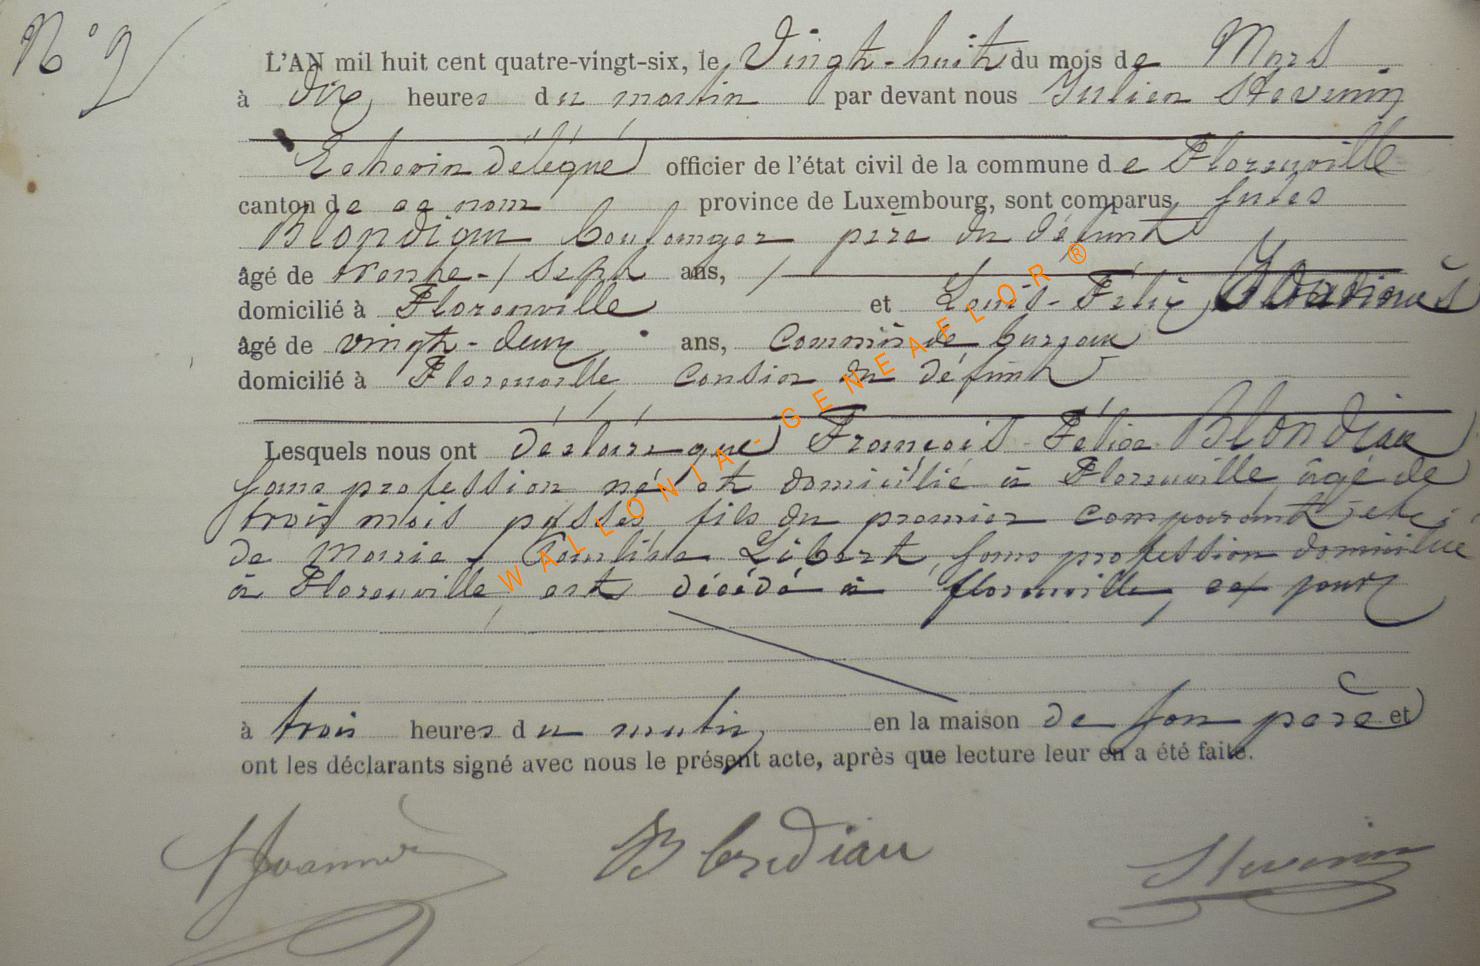 N° 9
L'AN mil huit cent quatre-vingt-six, le Vingt-huit du mois de Mars
à dix heures du matin par devant nous Julien Stevenin
Echevin délégué officier de l'état civil de la commune de Florenville
canton de ce nom province de Luxembourg, sont comparus Jules
Blondiau boulanger père du défunt
âgé de trente-sept ans,
domicilié à Florenville et Louis-Félix
âgé de vingt-deux ans, commis de bureau
domicilié à Florenville cousin du défunt
Lesquels nous ont déclaré que François Félix Blondiau
sans profession né et domicilié à Florenville âgé de
trois mois passés fils du premier comparant et
de Marie Libert, sans profession domiciliée
à Florenville, est décédé à florenville, ce jour
à trois heures du matin, en la maison de son père et
ont les déclarants signé avec nous le présent acte, après que lecture leur en a été faite.
Blondiau Stevenin
WALLONIA-GENEAFLOR ®